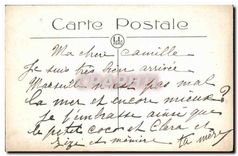 Carte Postale
Ma chère Camille
Je suis très bien arrivée
Marseille n'est pas mal
la mer et encore mieux
je t'embrasse ainsi que
le petit coco et Clara et
et mémère ta mère